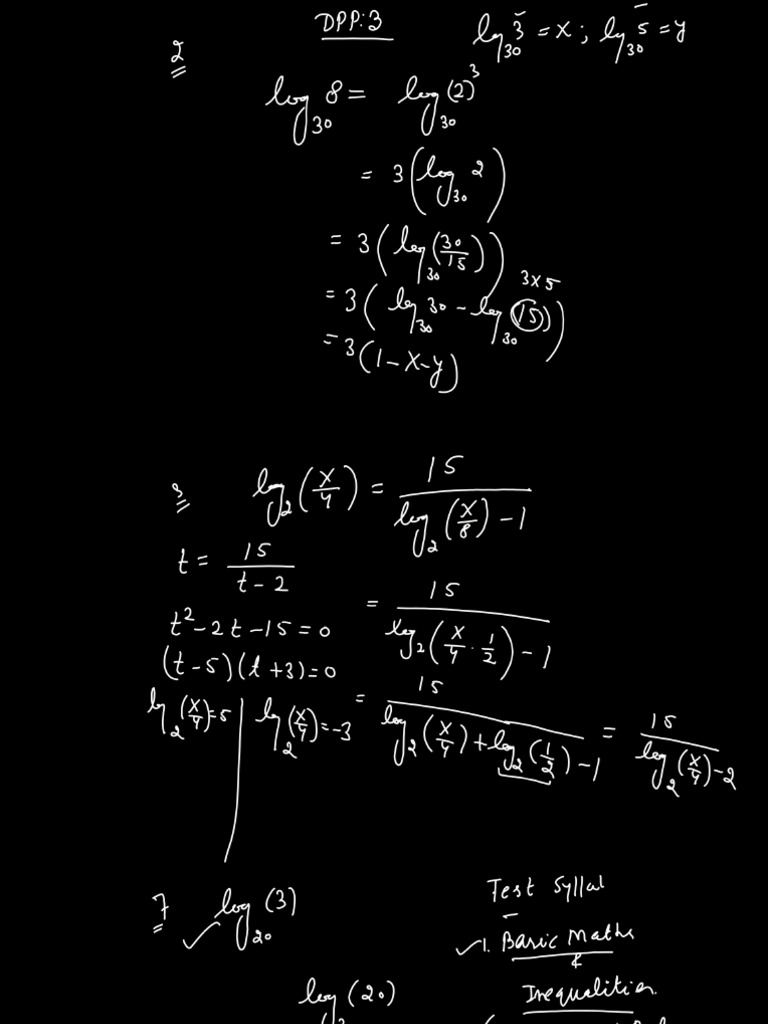 DPP:3
log₃₀ 3 = x ; log₃₀ 5 = y
2
log₃₀ 8 = log₃₀ (2)³
= 3(log₃₀ 2)
= 3(log₃₀(30/15))
3x5
= 3(log₃₀ 30 - log₃₀ (15))
= 3(1-x-y)
3
log₂(x/4) = 15/(log₂(x/8) - 1)
t = 15/(t-2)
= 15/(log₂(x/4 · 1/2) - 1)
t² - 2t - 15 = 0
(t-5)(t+3) = 0
log₂(x/4) = 5 | log₂(x/4) = -3
= 15/(log₂(x/4) + log₂(1/2) - 1) = 15/(log₂(x/4) - 2)
7 ✓ log₂₀ (3)
Test Syllal
✓1. Basic Maths
&
Inequalities
log₃ (20)